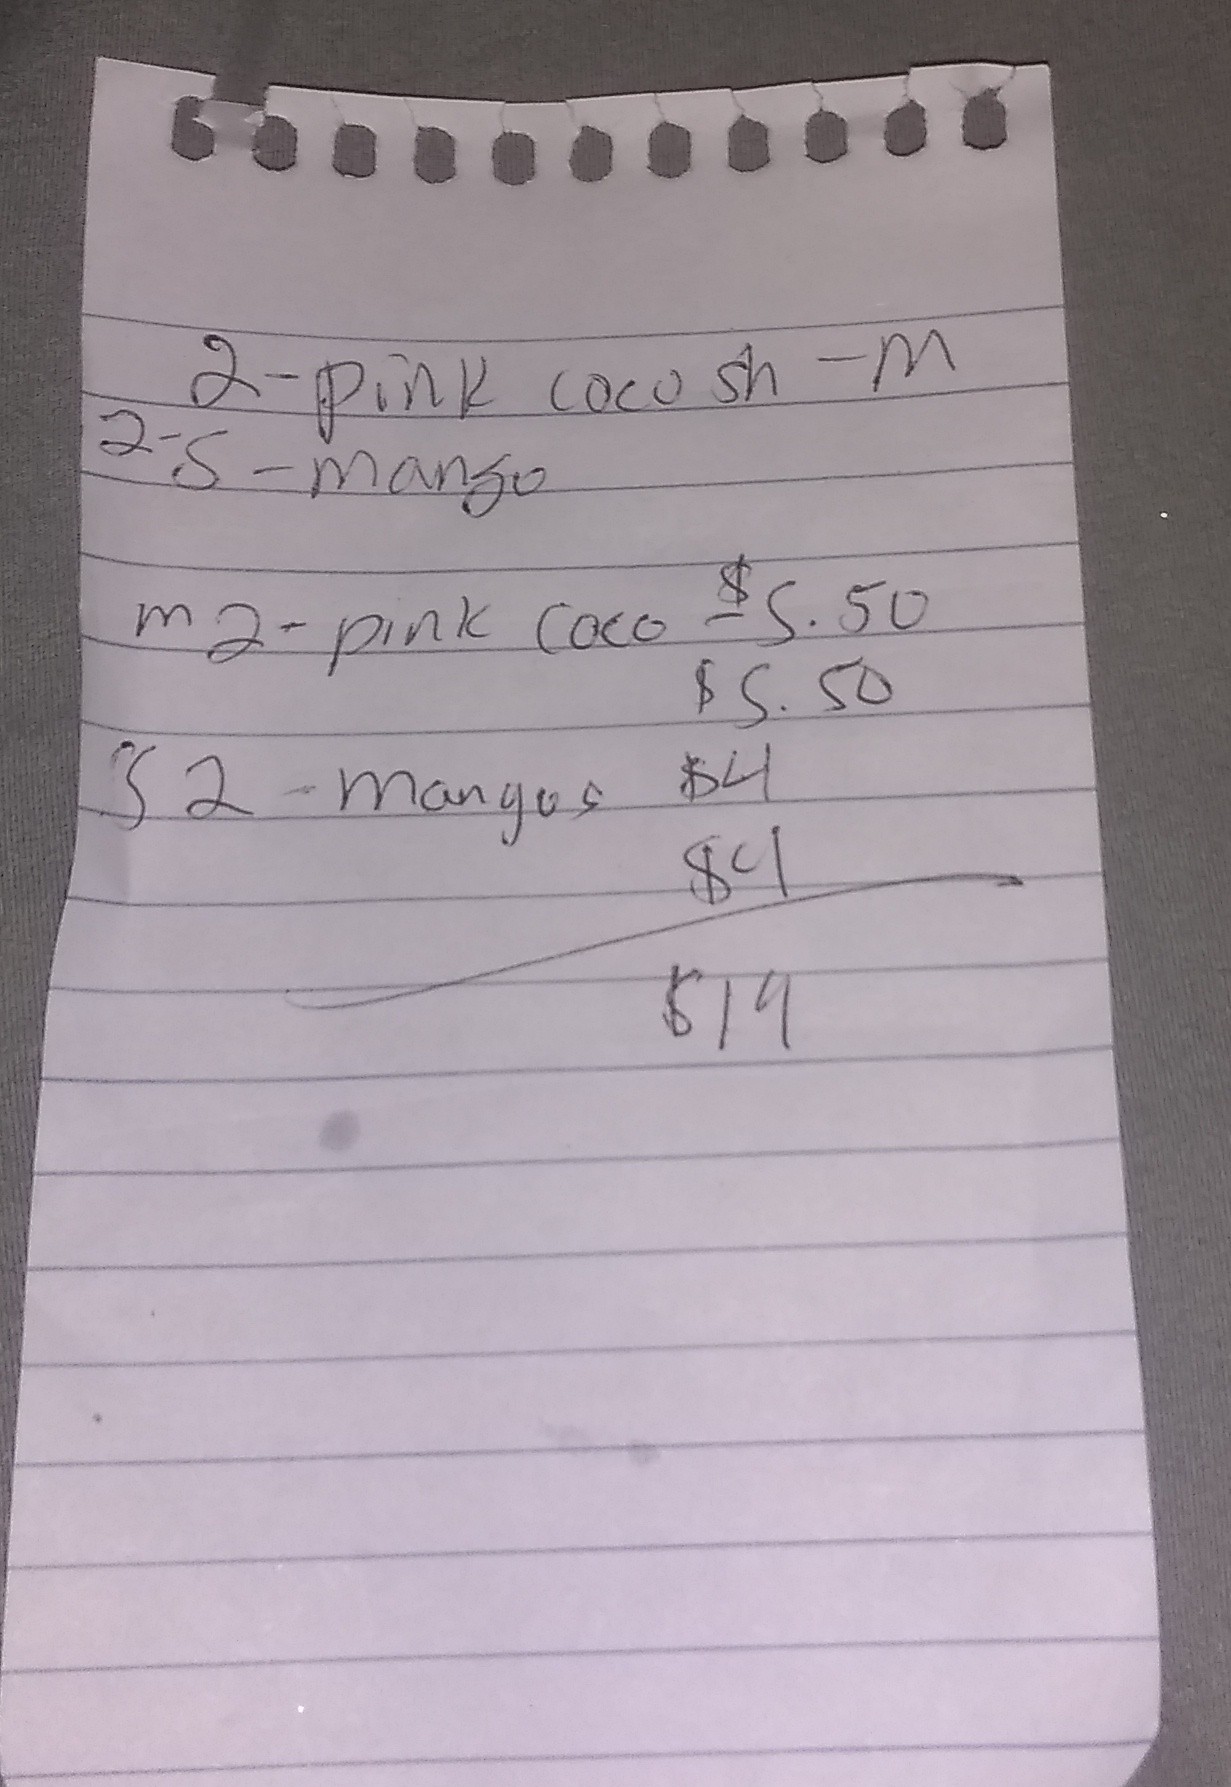 2-pink coco sh -m
2-S-mango
m 2- pink coco - $5.50
$5.50
S 2 - Mangos $4
$4
$19